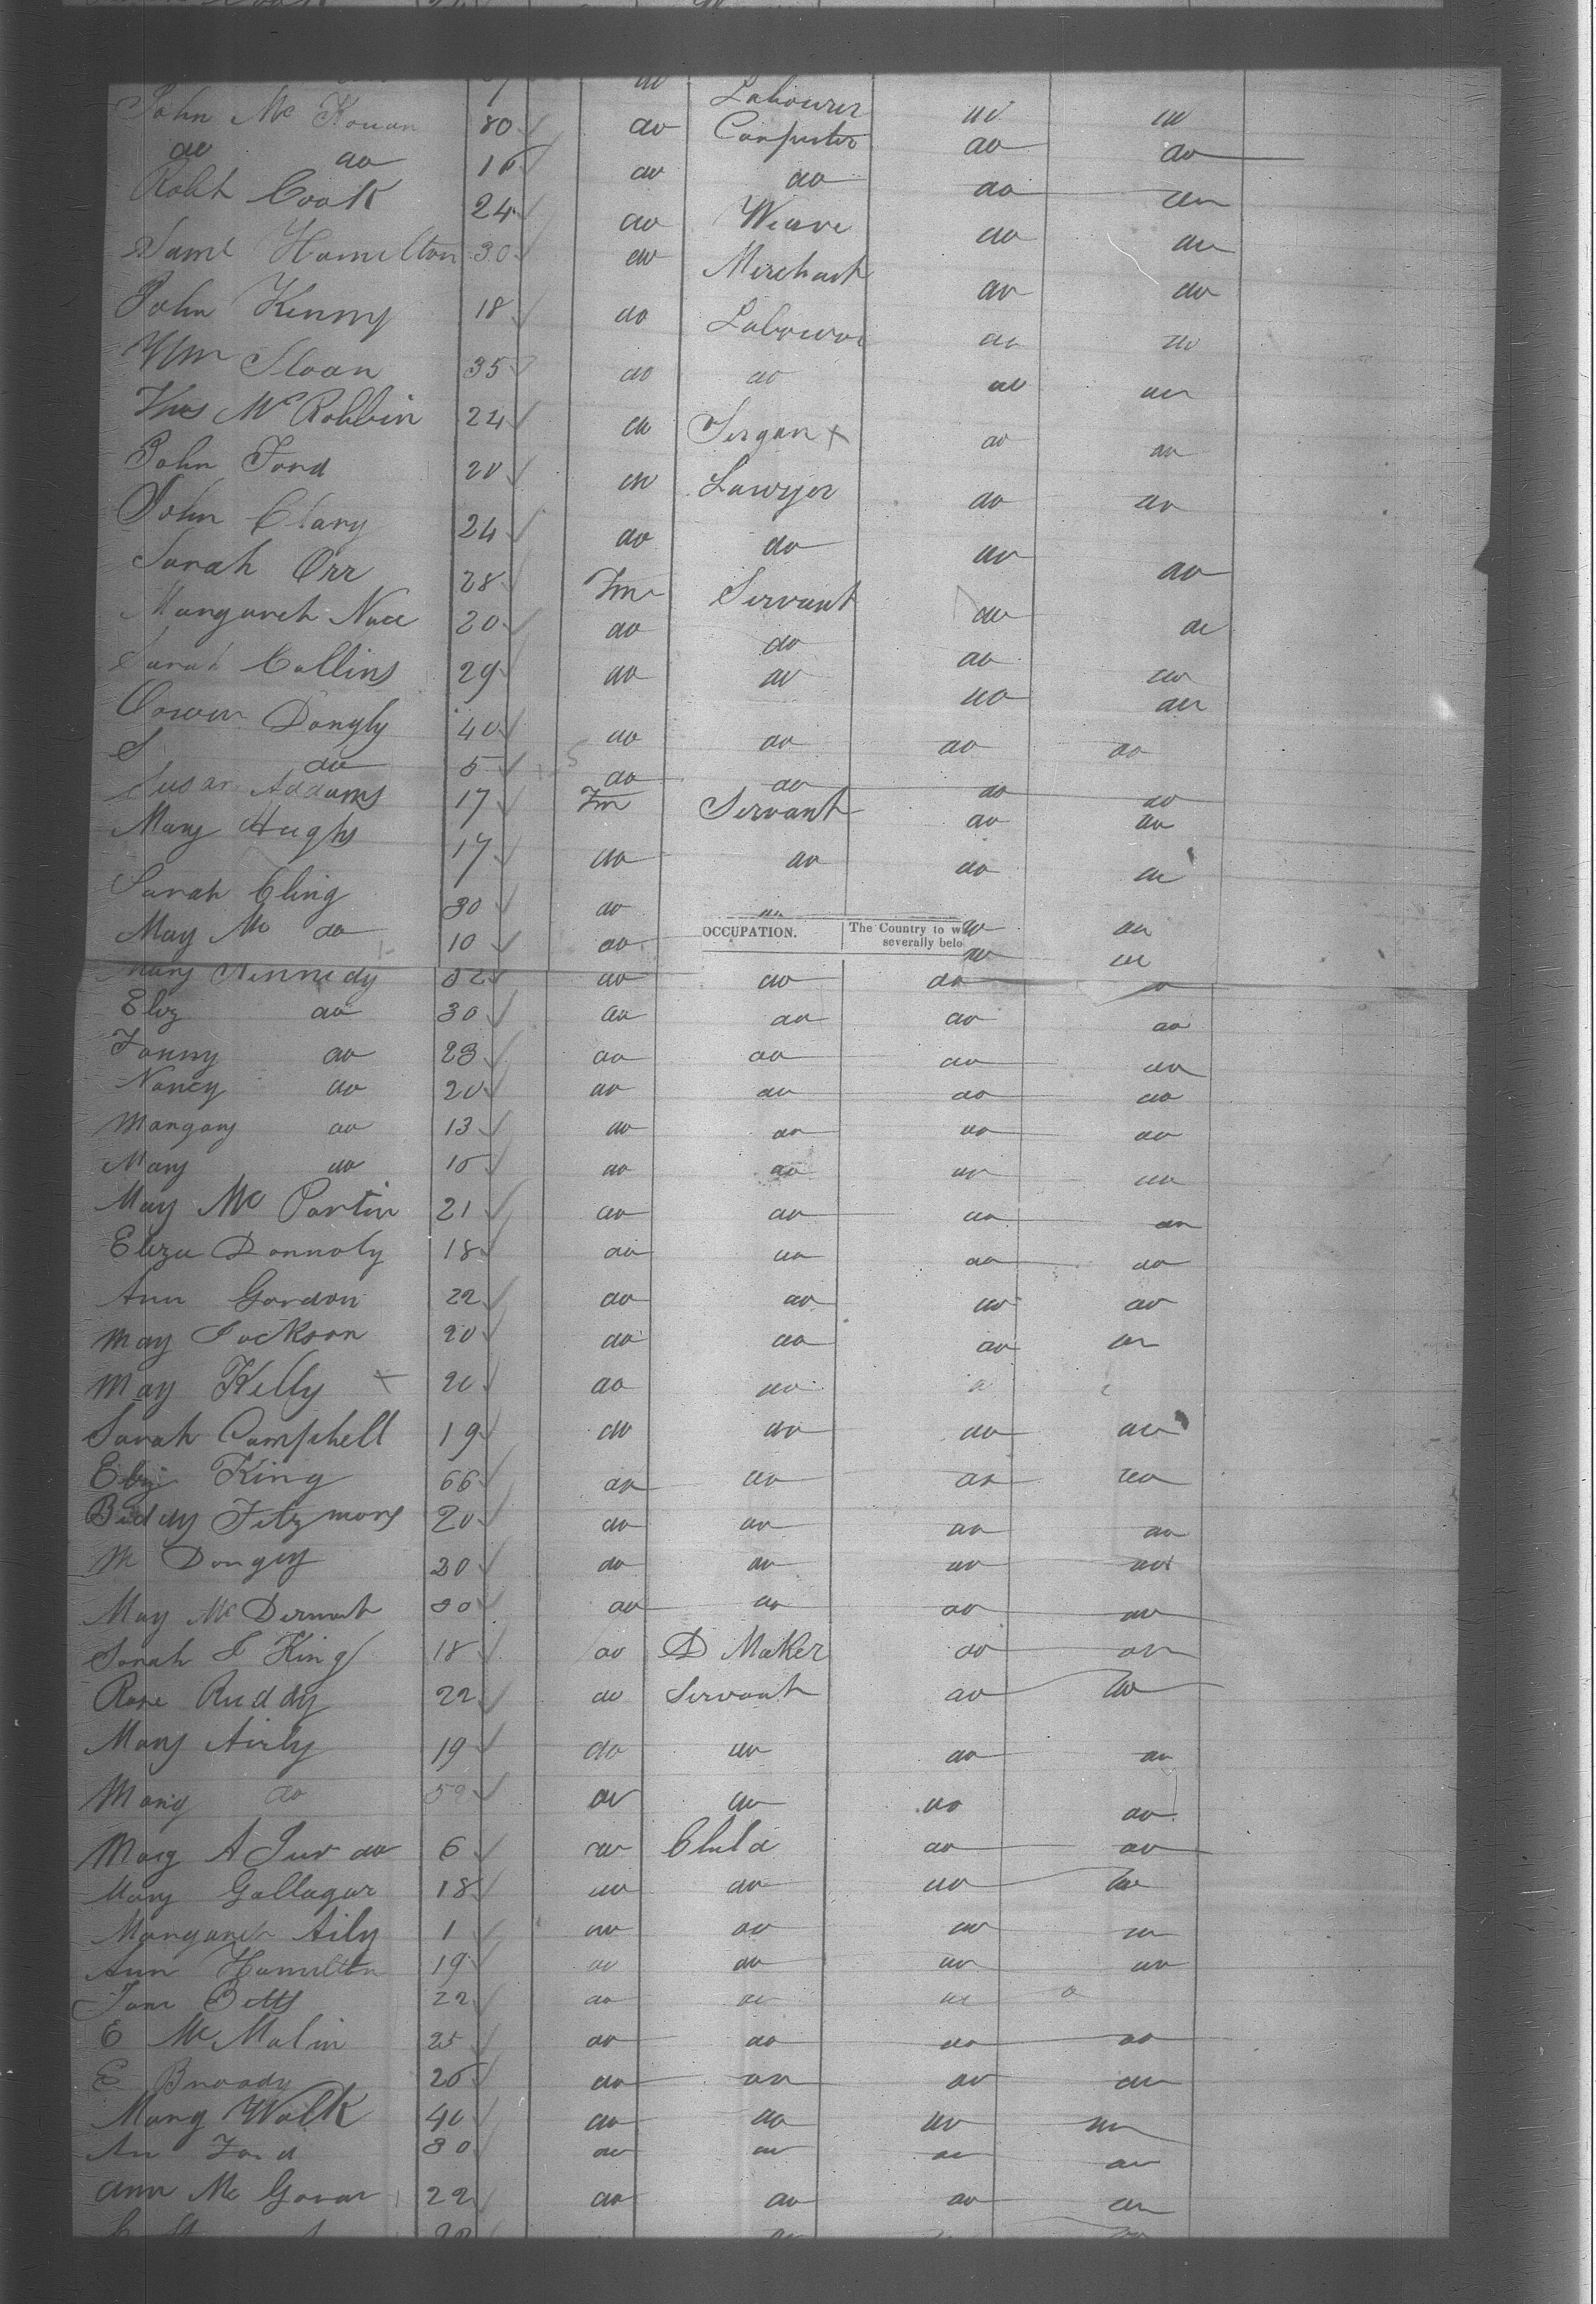 Labourer
John Mc Kouan 80 do Carpenter do do
do do 16 do do do do
Robt Cook 24 do Weave do do
Saml Hamilton 30 do Merchant do do
John Kenny 18 do Labourer do do
Wm Sloan 35 do do do do
Thos McRobbin 24 do Sergan x do do
John Ford 20 do Lawyer do do
John Clary 24 do do do do
Sarah Orr 28 Fm Servant do do
Margareth 20 do do do do
Sarah Collins 29 do do do do
Dongly 40 do do do do
S do 5 do do do do
Susan Addams 17 Fm Servant do do
Mary Hughs 17 do do do do
Sarah Cling 30 do do do do
May Mc do 10 do do do
OCCUPATION. The Country to w severally belo
Mary Kennedy 32 do do do do
Eliz do 30 do do do do
Fanny do 23 do do do do
Nancy do 20 do do do do
Margary do 13 do do do do
Mary do 15 do do do do
May Mc Partin 21 do do do do
Eliza Donnoly 18 do do do do
Ann Gordon 22 do do do do
May Jackson 20 do do do do
May Kelly x 20 do do
Sarah Campbell 19 do do do do
Eliz King 66 do do do do
Biddy Fitzmons 20 do do do do
M Dongey 30 do do do do
May McDermot 30 do do do do
Sarah J King 18 do D Maker do do
Rose Ruddy 22 do Servant do do
Mary Airly 19 do do do do
Mary do 59 do do do do
Marg A do 6 do Child do do
Mary Gallagar 18 do do do do
Margaret Aily 1 do do do do
Ann Hamilton 19 do do do do
Jane Betts 22 do do do
E McMalin 25 do do do do
E Broady 26 do do do do
Mary Walk 40 do do do do
An Ford 30 do do do do
Ann Mc Govar 22 do do do do